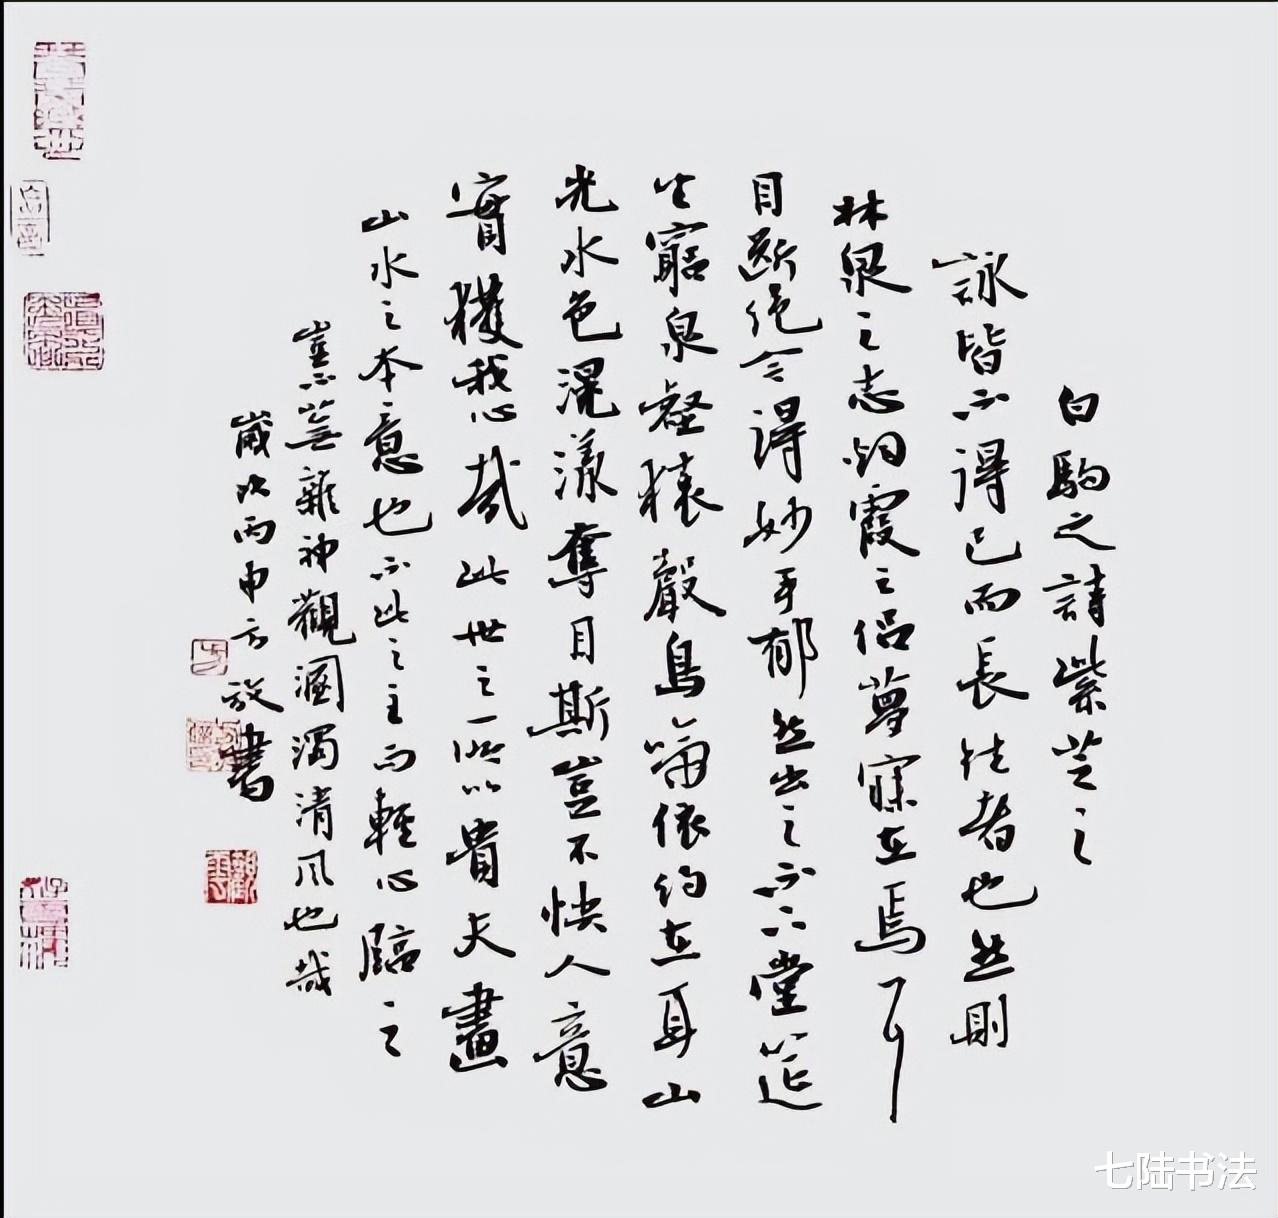 白駒之詩紫芝之
詠皆不得已而長往者也然則
林泉之志烟霞之侶夢寐在焉耳
目斷絕今得妙手郁然出之不下堂筵
坐窮泉壑猿聲鳥啼依約在耳山
光水色滉漾奪目斯豈不快人意
實獲我心哉此世之所以貴夫畫
山水之本意也不此之主而輕心臨之
豈不蕪雜神觀溷濁清風也哉
歲次丙申方放書
七陆书法